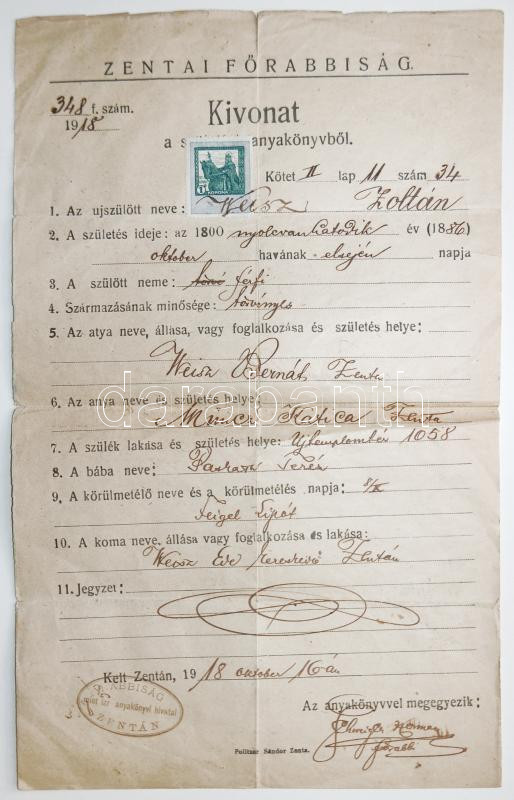 ZENTAI FŐRABBISÁG.
348 f. szám.
1918
Kivonat
a anyakönyvből.
1 KORONA
Kötet II lap 11 szám 34
1. Az ujszülött neve: Weisz Zoltán
2. A születés ideje: az 1800 nyolcvanhatodik év (1886)
október havának elsején napja
3. A szülött neme: férfi
4. Származásának minősége: törvényes
5. Az atya neve, állása, vagy foglalkozása és születés helye:
Weisz Bernát Zenta
6. Az anya neve és születés helye:
Katica Zenta
7. A szülék lakása és születés helye: 1058
8. A bába neve: Teréz
9. A körülmetélő neve és a körülmetélés napja: 8/X
Feigel Lipót
10. A koma neve, állása vagy foglalkozása és lakása:
Weisz Ede kereskedő Zentán
11. Jegyzet:
Kelt Zentán, 1918 október 16-án
FŐRABBISÁG
mint izr. anyakönyvi hivatal
ZENTÁN
Az anyakönyvvel megegyezik:
főrabbi
Polikzer Sándor Zenta.
darabanth